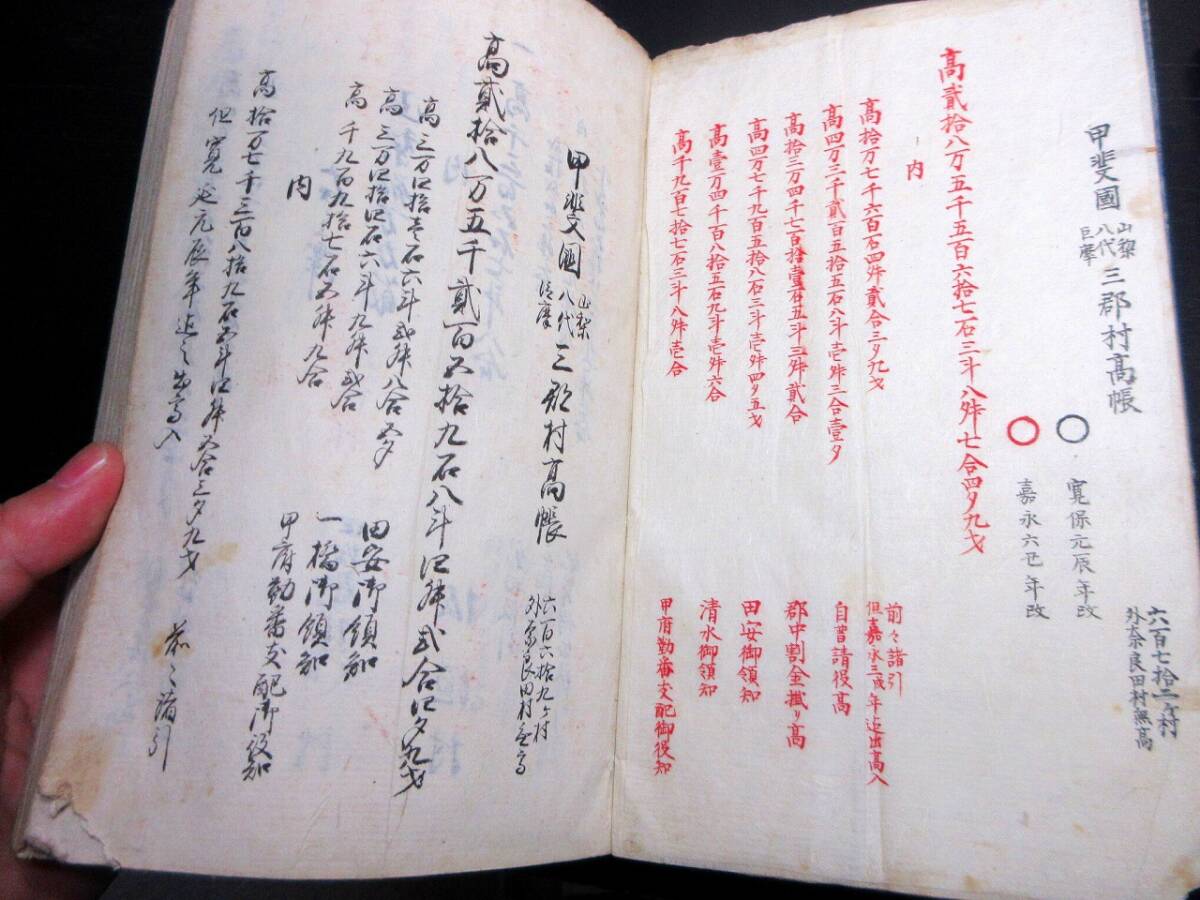 甲斐國 山梨 八代 巨摩 三郡村高帳
六百七拾二ヶ村
外奈良田村無高
○ 寛保元辰年改
○ 嘉永六丑年改
高貳拾八万五千五百六拾七石三斗八舛七合四夕九才
内
高拾万七千六百石四舛貳合三夕九才 前々諸引
但嘉永三戌年迄出高入
高四万三千貳百五拾五石八斗壱舛三合壹夕 自普請役高
高拾三万四千七百拾壹石五斗三舛貳合 郡中割金掛り高
高四万七千九百五拾八石三斗壱舛四夕五才 田安御領知
高壹万四千百八拾五石九斗壱舛六合 清水御領知
高千九百七拾七石三斗八舛壱合 甲府勤番支配御役知
甲斐國 山梨 八代 巨摩 三郡村高帳
六百六拾九ヶ村
外奈良田村無高
高貳拾八万五千貳百五拾九石八斗四舛弐合四夕九才
高三万四拾壱石六斗弐舛八合五夕 田安御領知
高三万四拾四石六斗九舛弐合 一橋御領知
高千九百九拾七石五舛九合 甲府勤番支配御役知
内
高拾万七千三百八拾九石五斗四舛五合三夕九才 前々諸引
但寛延元辰年迄之出高入